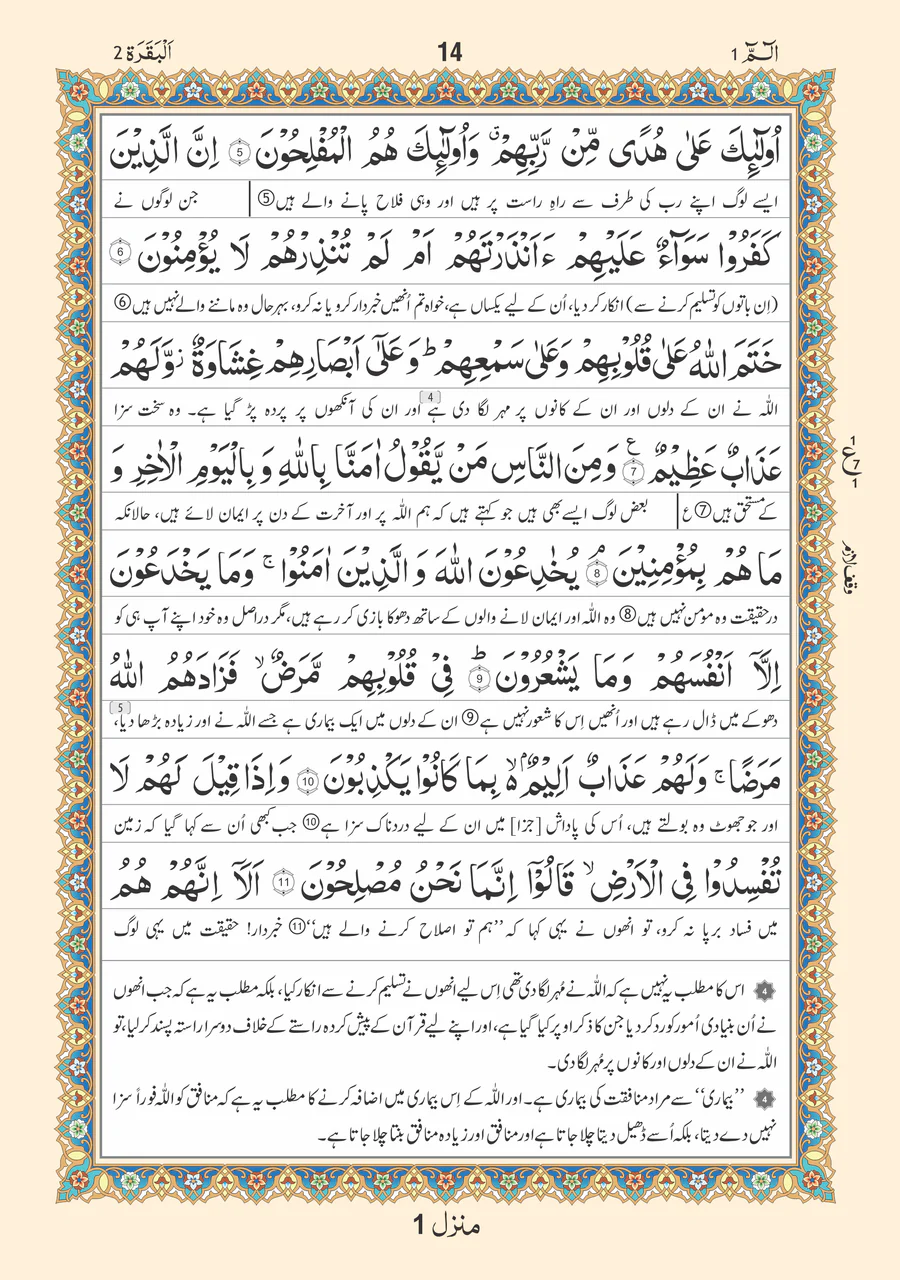 الٓمّٓ 1
14
اَلْبَقَرَة 2
اُولٰٓئِكَ عَلٰى هُدًى مِّنْ رَّبِّهِمْ ۗ وَاُولٰٓئِكَ هُمُ الْمُفْلِحُوْنَ 5 اِنَّ الَّذِيْنَ
ایسے لوگ اپنے رب کی طرف سے راہِ راست پر ہیں اور وہی فلاح پانے والے ہیں 5 جن لوگوں نے
كَفَرُوْا سَوَآءٌ عَلَيْهِمْ ءَاَنْذَرْتَهُمْ اَمْ لَمْ تُنْذِرْهُمْ لَا يُؤْمِنُوْنَ 6
(اِن باتوں کو تسلیم کرنے سے) انکار کر دیا، اُن کے لیے یکساں ہے، خواہ تم اُنھیں خبردار کرو یا نہ کرو، بہرحال وہ ماننے والے نہیں ہیں 6
خَتَمَ اللّٰهُ عَلٰى قُلُوْبِهِمْ وَعَلٰى سَمْعِهِمْ ؕ وَعَلٰٓى اَبْصَارِهِمْ غِشَاوَةٌ ز وَّلَهُمْ
اللہ نے ان کے دلوں اور ان کے کانوں پر مہر لگا دی ہے [4] اور ان کی آنکھوں پر پردہ پڑ گیا ہے۔ وہ سخت سزا
عَذَابٌ عَظِيْمٌ 7 ع وَمِنَ النَّاسِ مَنْ يَّقُوْلُ اٰمَنَّا بِاللّٰهِ وَ بِالْيَوْمِ الْاٰخِرِ وَ
1 ع 7 1
کے مستحق ہیں 7 ع بعض لوگ ایسے بھی ہیں جو کہتے ہیں کہ ہم اللہ پر اور آخرت کے دن پر ایمان لائے ہیں، حالانکہ
مَا هُمْ بِمُؤْمِنِيْنَ 8 ۘ يُخٰدِعُوْنَ اللّٰهَ وَ الَّذِيْنَ اٰمَنُوْا ۚ وَمَا يَخْدَعُوْنَ
وقف لازم
درحقیقت وہ مومن نہیں ہیں 8 وہ اللہ اور ایمان لانے والوں کے ساتھ دھوکا بازی کر رہے ہیں، مگر دراصل وہ خود اپنے آپ ہی کو
اِلَّآ اَنْفُسَهُمْ وَمَا يَشْعُرُوْنَ 9 ؕ فِيْ قُلُوْبِهِمْ مَّرَضٌ ۙ فَزَادَهُمُ اللّٰهُ
دھوکے میں ڈال رہے ہیں اور اُنھیں اِس کا شعور نہیں ہے 9 ان کے دلوں میں ایک بیماری ہے جسے اللہ نے اور زیادہ بڑھا دیا، [5]
مَرَضًا ۚ وَلَهُمْ عَذَابٌ اَلِيْمٌۢ ۙ۬ بِمَا كَانُوْا يَكْذِبُوْنَ 10 وَاِذَا قِيْلَ لَهُمْ لَا
اور جو جھوٹ وہ بولتے ہیں، اُس کی پاداش [جزا] میں ان کے لیے دردناک سزا ہے 10 جب کبھی اُن سے کہا گیا کہ زمین
تُفْسِدُوْا فِي الْاَرْضِ ۙ قَالُوْٓا اِنَّمَا نَحْنُ مُصْلِحُوْنَ 11 اَلَآ اِنَّهُمْ هُمُ
میں فساد برپا نہ کرو، تو انھوں نے یہی کہا کہ ’’ہم تو اصلاح کرنے والے ہیں‘‘ 11 خبردار! حقیقت میں یہی لوگ
4 اس کا مطلب یہ نہیں ہے کہ اللہ نے مُہر لگا دی تھی اِس لیے انھوں نے تسلیم کرنے سے انکار کیا، بلکہ مطلب یہ ہے کہ جب انھوں
نے اُن بنیادی اُمور کو رد کر دیا جن کا ذکر اوپر کیا گیا ہے، اور اپنے لیے قرآن کے پیش کردہ راستے کے خلاف دوسرا راستہ پسند کر لیا، تو
اللہ نے ان کے دلوں اور کانوں پر مُہر لگا دی۔
4 ’’بیماری‘‘ سے مراد منافقت کی بیماری ہے۔ اور اللہ کے اِس بیماری میں اضافہ کرنے کا مطلب یہ ہے کہ منافق کو اللہ فوراً سزا
نہیں دے دیتا، بلکہ اُسے ڈھیل دیتا چلا جاتا ہے اور منافق اور زیادہ منافق بنتا چلا جاتا ہے۔
منزل 1